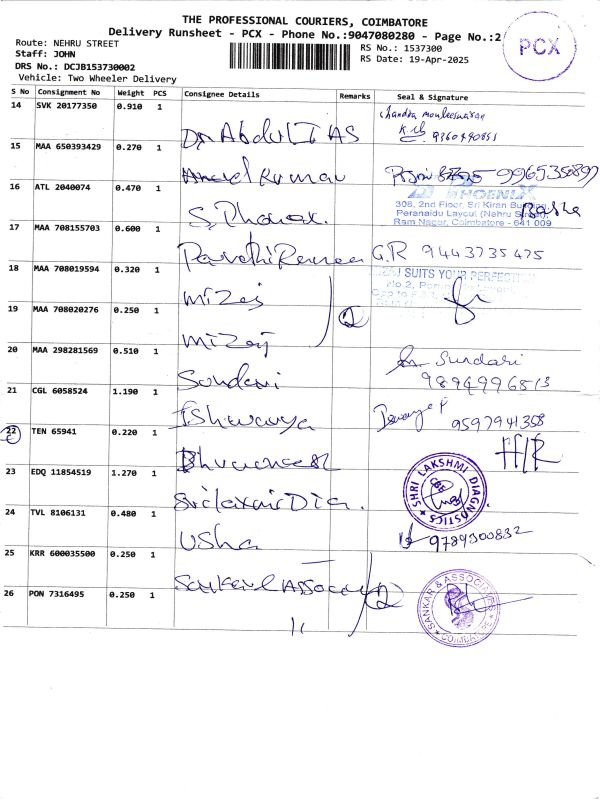 THE PROFESSIONAL COURIERS, COIMBATORE
Delivery Runsheet - PCX - Phone No.:9047080280 - Page No.:2
PCX
Route: NEHRU STREET
Staff: JOHN
DRS No.: DCJB153730002
Vehicle: Two Wheeler Delivery
RS No.: 1537300
RS Date: 19-Apr-2025
S No Consignment No Weight PCS Consignee Details Remarks Seal & Signature
14 SVK 20177350 0.910 1 Dr Abdul IAS
9360490851
15 MAA 650393429 0.270 1 Kumar
16 ATL 2040074 0.470 1 S. Phoenix.
PHOENIX
306, 2nd Floor, Sri Kiran
Peranaidu Layout (Nehru Street),
Ram Nagar, Coimbatore - 641 009
Basha
17 MAA 708155703 0.600 1 G.R 9443735475
18 MAA 708019594 0.320 1 Mizaj
SUITS YOUR PERFECTION
No 2,
19 MAA 708020276 0.250 1 Mizaj
2
20 MAA 298281569 0.510 1 Sundari Sundari
21 CGL 6058524 1.190 1 Ishwarya
9597941358
22 TEN 65941 0.220 1 H/R
23 EDQ 11854519 1.270 1
SHRI LAKSHMI DIAGNOSTICS
24 TVL 8106131 0.480 1 Usha 9789300832
25 KRR 600035500 0.250 1
2
26 PON 7316495 0.250 1 "
SANKAR & ASSOCIATES
COIMBATORE